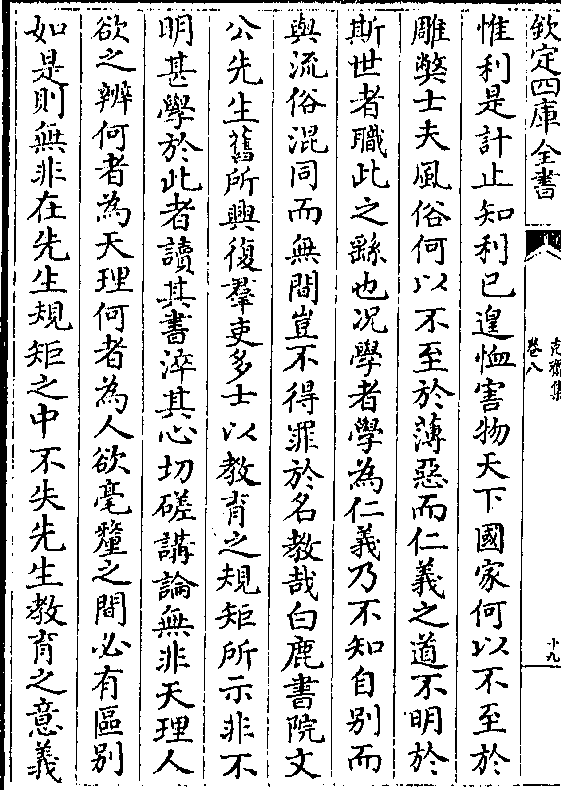 欽定四庫全書
克齋集
卷八
十九
惟利是計止知利已遑恤害物天下國家何以不至於
雕弊士夫風俗何以不至於薄惡而仁義之道不明於
斯世者職此之繇也况學者學為仁義乃不知自别而
與流俗混同而無間豈不得罪於名教哉白鹿書院文
公先生舊所興復羣吏多士以教育之規矩所示非不
明甚學於此者讀其書淬其心切磋講論無非天理人
欲之辨何者為天理何者為人欲毫釐之間必有區别
如是則無非在先生規矩之中不失先生教育之意義